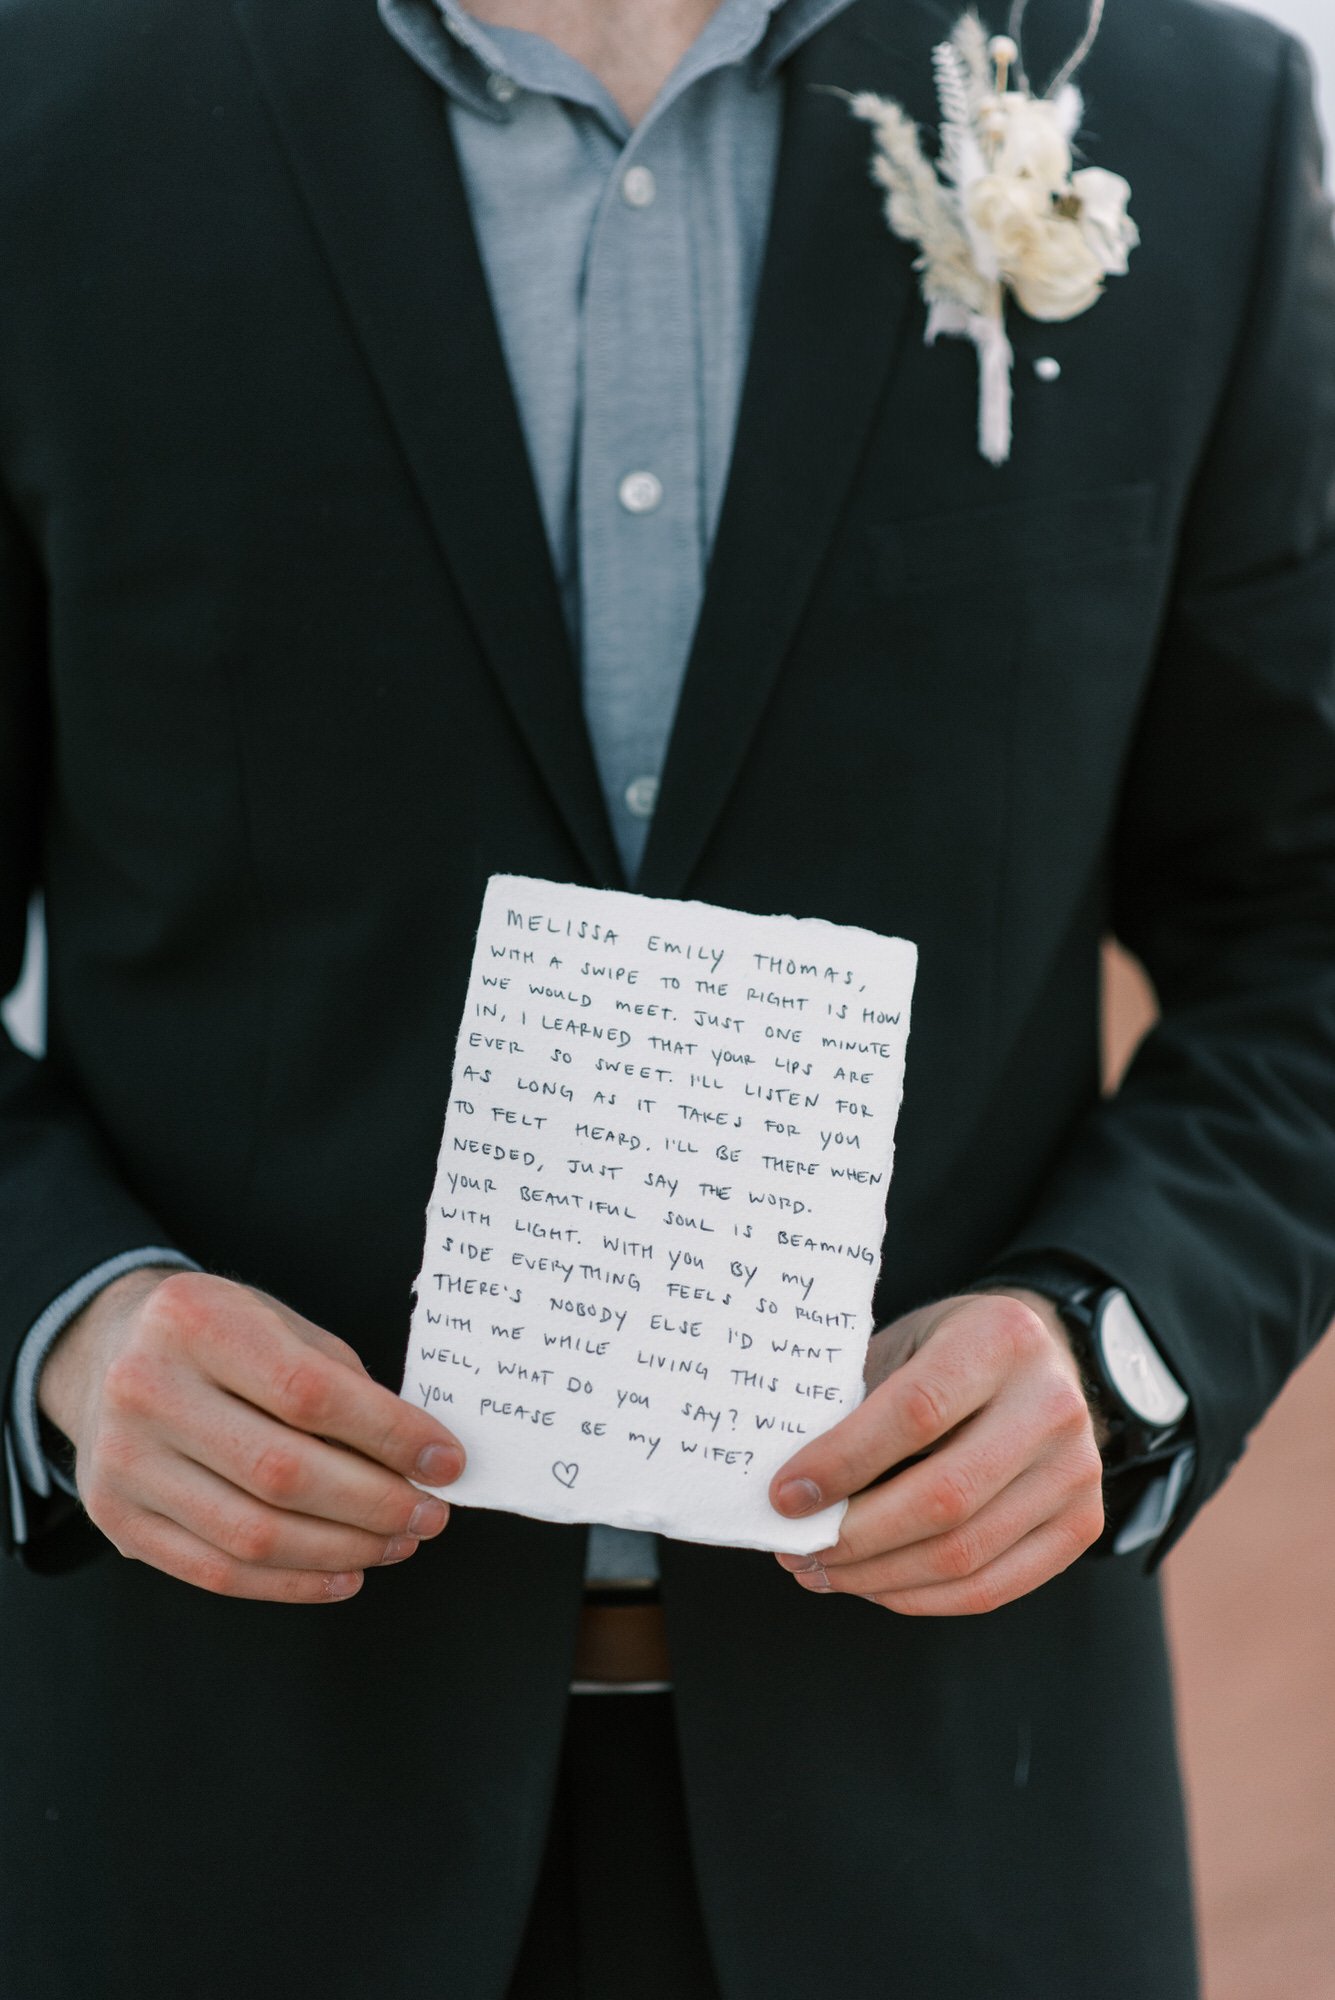 MELISSA EMILY THOMAS,
WITH A SWIPE TO THE RIGHT IS HOW
WE WOULD MEET. JUST ONE MINUTE
IN, I LEARNED THAT YOUR LIPS ARE
EVER SO SWEET. I'LL LISTEN FOR
AS LONG AS IT TAKES FOR YOU
TO FELT HEARD. I'LL BE THERE WHEN
NEEDED, JUST SAY THE WORD.
YOUR BEAUTIFUL SOUL IS BEAMING
WITH LIGHT. WITH YOU BY MY
SIDE EVERYTHING FEELS SO RIGHT.
THERE'S NOBODY ELSE I'D WANT
WITH ME WHILE LIVING THIS LIFE.
WELL, WHAT DO YOU SAY? WILL
YOU PLEASE BE MY WIFE?
♡